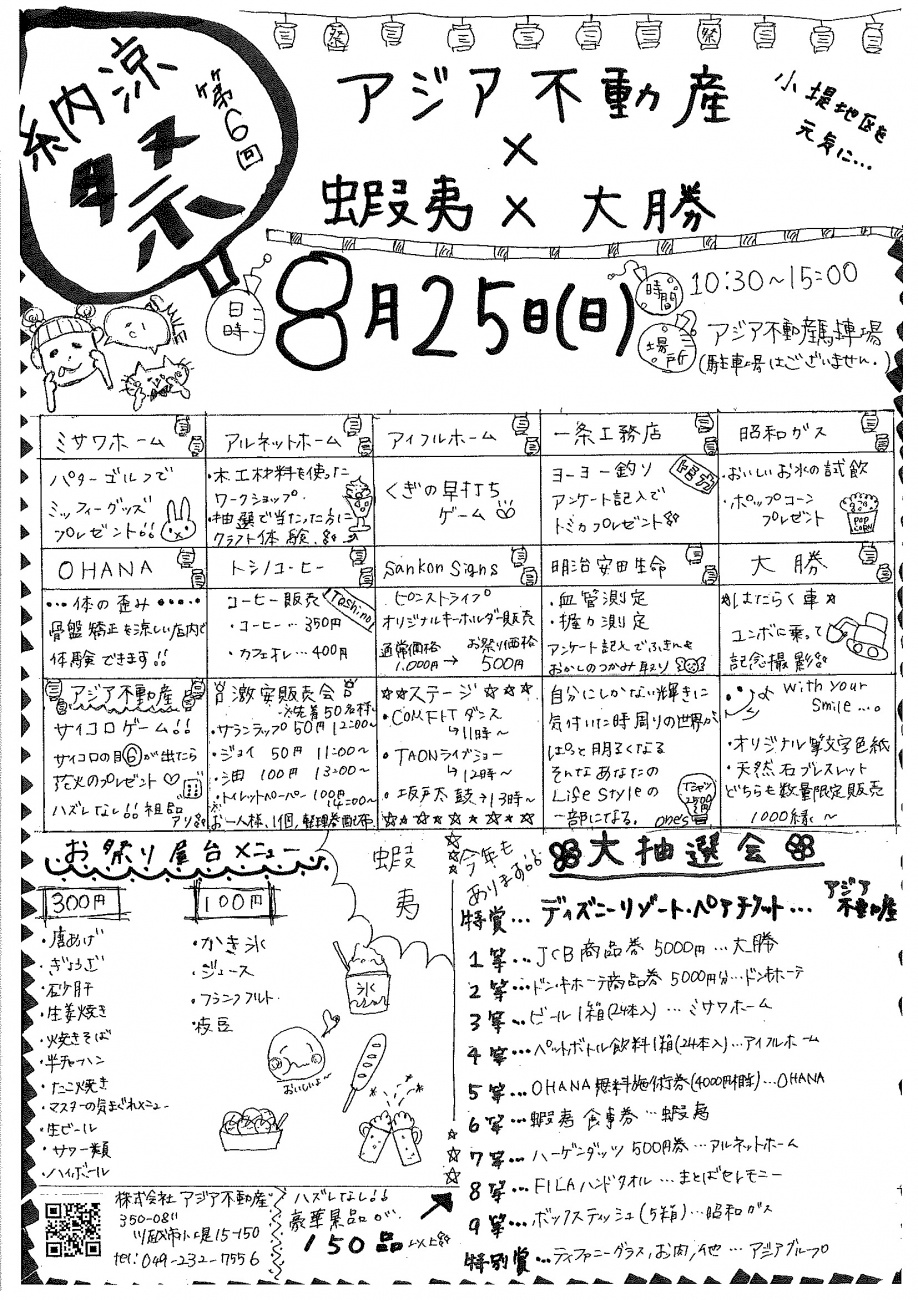 納涼
祭
第6回
アジア不動産
×
蝦夷×大勝
小堤地区を
元気に…
日時
8月25日(日)
時間
10:30～15:00
場所
アジア不動産駐車場
(駐車場はございません.)
ミサワホーム
パターゴルフで
ミッフィーグッズ
プレゼント!!
アルネットホーム
・木工材料を使った
ワークショップ.
・抽選で当たった方に
クラフト体験.
アイフルホーム
くぎの早打ち
ゲーム
一条工務店
ヨーヨー釣り
アンケート記入で
トミカプレゼント
昭和ガス
・おいしいお水の試飲
・ポップコーン
プレゼント
POP
CORN
OHANA
・・・体の歪み・・・・・
骨盤矯正を涼しい店内で
体験できます!!
トシノコーヒー
コーヒー販売
Toshino
・コーヒー…350円
・カフェオレ…400円
Sankon Signs
ピンストライプ
オリジナルキーホルダー販売
通常価格 お祭り価格
1,000円→500円
明治安田生命
・血管測定
・握力測定
アンケート記入でふきんと
おかしのつかみ取り
大勝
はたらく車
ユンボに乗って
記念撮影
アジア不動産
サイコロゲーム!!
サイコロの目⑥が出たら
花火のプレゼント♡
ハズレなし!!粗品
アリ
激安販売会
※先着50名様
・サランラップ 50円 12:00～
・ジョイ 50円 11:00～
・油 100円 13:00～
・トイレットペーパー 100円
14:00～
お一人様、1個、整理券配布
☆☆ステージ☆☆☆
・COMFITダンス
↳11時～
・TAONライブショー
↳12時～
・坂戸太鼓→13時～
☆☆☆☆☆☆☆☆☆
自分にしかない輝きに
気付いた時周りの世界が
ぱっと明るくなる
そんなあなたの
Life styleの
一部になる. one's
with your
smile...。
・オリジナル筆文字色紙
・天然石ブレスレット
どちらも数量限定販売
1000縁～
お祭り屋台メニュー
300円
・唐あげ
・ぎょうざ
・砂肝
・生姜焼き
・焼きそば
・半チャーハン
・たこ焼き
・マスターの気まぐれメニュー
・生ビール
・サワー類
・ハイボール
100円
・かき氷
・ジュース
・フランクフルト
・枝豆
蝦夷
氷
おいしいよ～
今年も
あります!!
大抽選会
特賞…ディズニーリゾート・ペアチケット…アジア不動産
1等…JCB商品券 5000円…大勝
2等…ドンキホーテ商品券 5000円分…ドンキホーテ
3等…ビール1箱(24本入)…ミサワホーム
4等…ペットボトル飲料1箱(24本入)…アイフルホーム
5等…OHANA無料施術券(4000円相当)…OHANA
6等…蝦夷 食事券…蝦夷
7等…ハーゲンダッツ 500円券…アルネットホーム
8等…FILAハンドタオル…まとばセレモニー
9等…ボックスティッシュ(5箱)…昭和ガス
特別賞…ティファニーグラス,お肉,他…アジアグループ
株式会社アジア不動産
350-0811
川越市小堤15-150
tel:049-232-7556
ハズレなし!!
豪華景品が.
150品以上